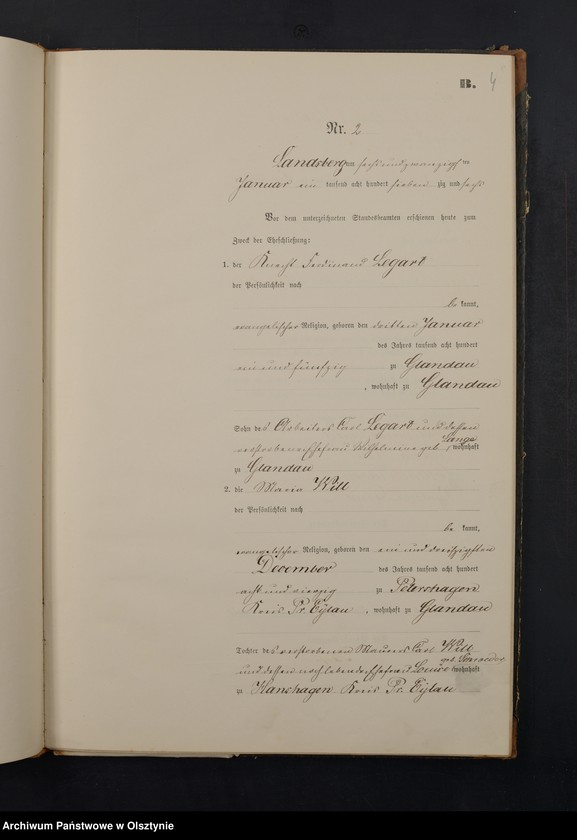 B. 4
Nr. 2
Landsberg am sechs und zwanzigsten
Januar ein tausend acht hundert sieben zig und sechs
Vor dem unterzeichneten Standesbeamten erschienen heute zum
Zweck der Eheschließung:
1. der Knecht Ferdinand Legart
der Persönlichkeit nach
be kannt,
evangelischer Religion, geboren den dritten Januar
des Jahres tausend acht hundert
ein und fünfzig zu Glandau
, wohnhaft zu Glandau
Sohn des Arbeiters Carl Legart und dessen
verstorbenen Ehefrau Wilhelmine geb. Lange, wohnhaft
zu Glandau
2. die Maria Will
der Persönlichkeit nach
be kannt,
evangelischer Religion, geboren den ein und dreißigsten
December des Jahres tausend acht hundert
acht und vierzig zu Petershagen
Kreis Pr. Eylau, wohnhaft zu Glandau
Tochter des verstorbenen Maurers Carl Will
und dessen noch lebenden Ehefrau Louise geb. wohnhaft
zu Hanshagen Kreis Pr. Eylau
Archiwum Państwowe w Olsztynie